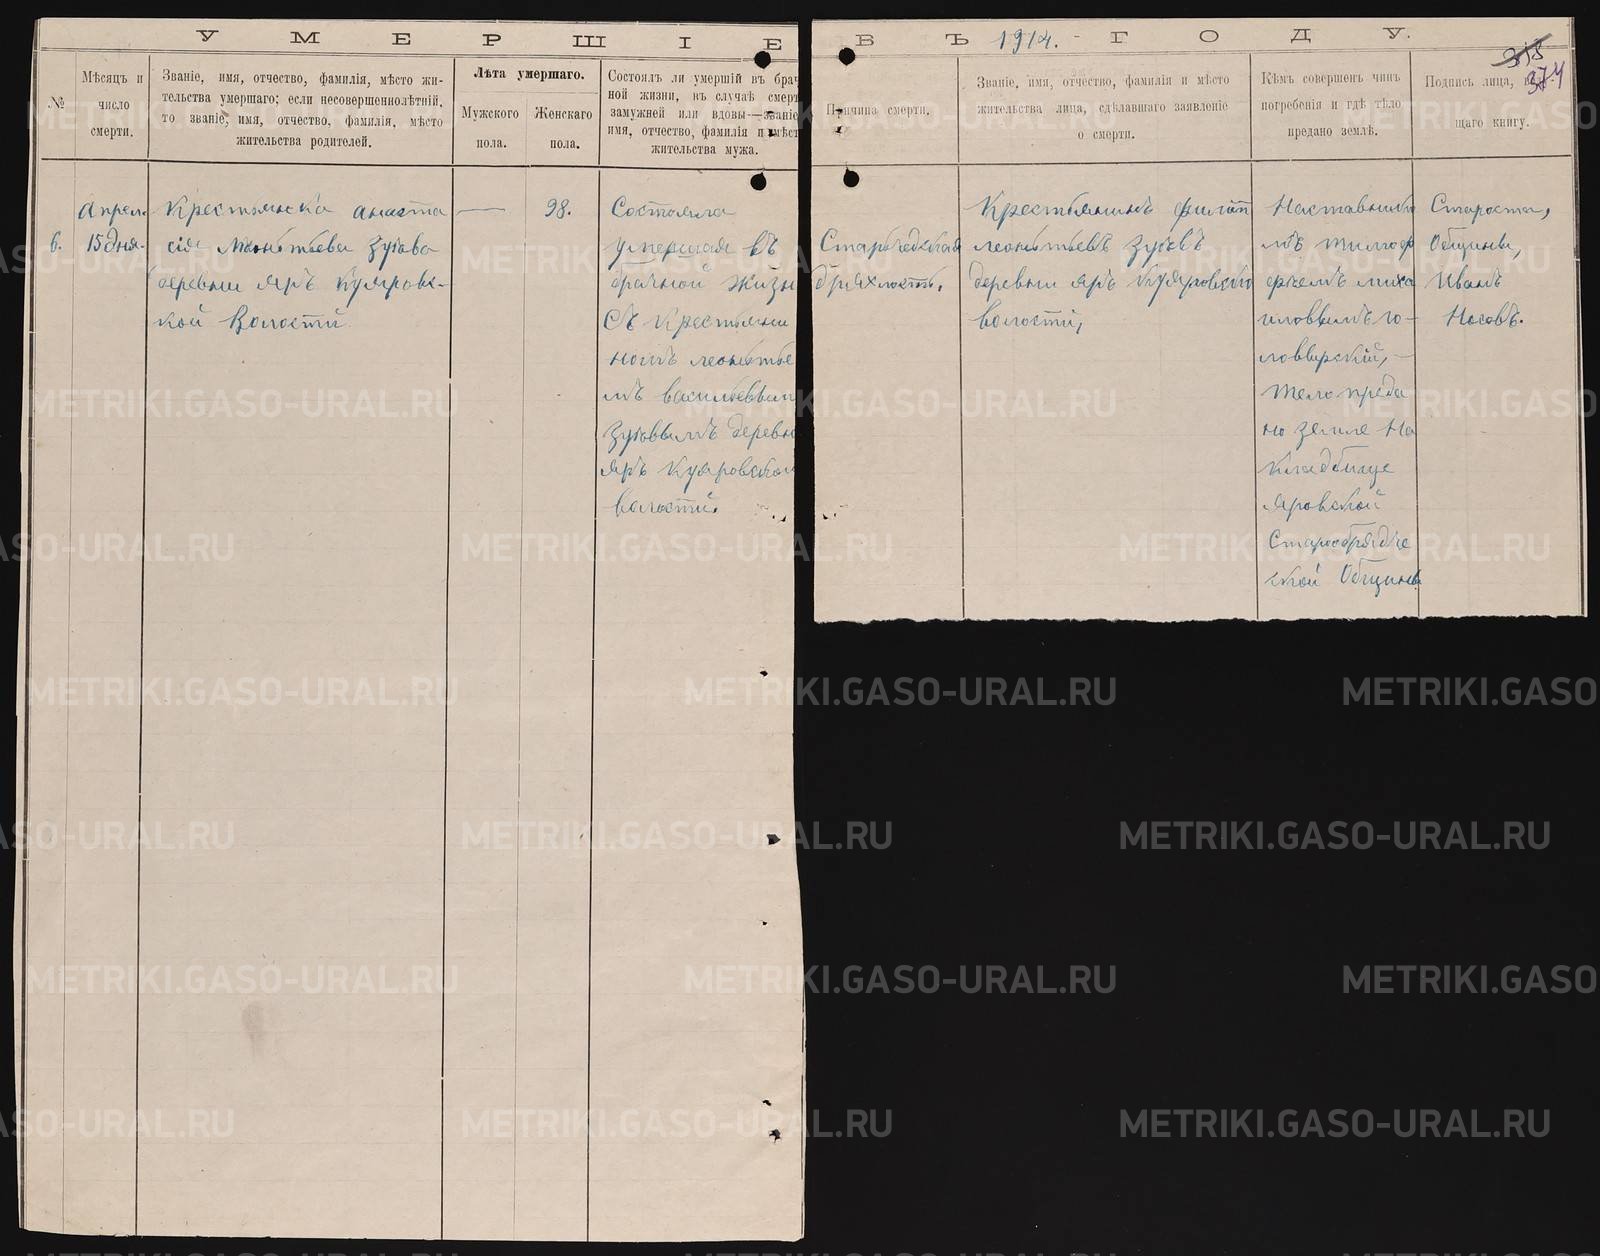 УМЕРШІЕ ВЪ 1914. ГОДУ.
318
374
№
Мѣсяцъ и
число
смерти.
Званіе, имя, отчество, фамилія, мѣсто жи-
тельства умершаго; если несовершеннолѣтній,
то званіе, имя, отчество, фамилія, мѣсто
жительства родителей.
Лѣта умершаго.
Мужского
пола.
Женскаго
пола.
Состоялъ ли умершій въ брач
ной жизни, въ случаѣ смерт
замужней или вдовы—званіе
имя, отчество, фамилія и мѣст
жительства мужа.
Причина смерти.
Званіе, имя, отчество, фамилія и мѣсто
жительства лица, сдѣлавшаго заявленіе
о смерти.
Кѣмъ совершенъ чинъ
погребенія и гдѣ тѣло
предано землѣ.
Подпись лица,
щаго книгу.
6.
Апрел.
15 дня.
Крестьянска анаста
сія Зуева
деревни яръ Куяровс-
кой Волости
98.
Состояла
умершая въ
брачной жизн
Съ Крестьяни
номъ леонтье
мъ васильевым
Зуевымъ деревн
яръ Куяровской
волости.
Старческая
дряхлость,
Крестьянинъ филип
леонтьевъ Зуевъ
деревни яръ Куяровской
волости,
Наставнико
мъ тимоф
феемъ миха
иловымъ го-
ловырский, —
тело преда
но земле На
кладбище
яровской
Старообрядче
ской Общины
Староста,
Общины,
Иванъ
Носовъ.
METRIKI.GASO-URAL.RU